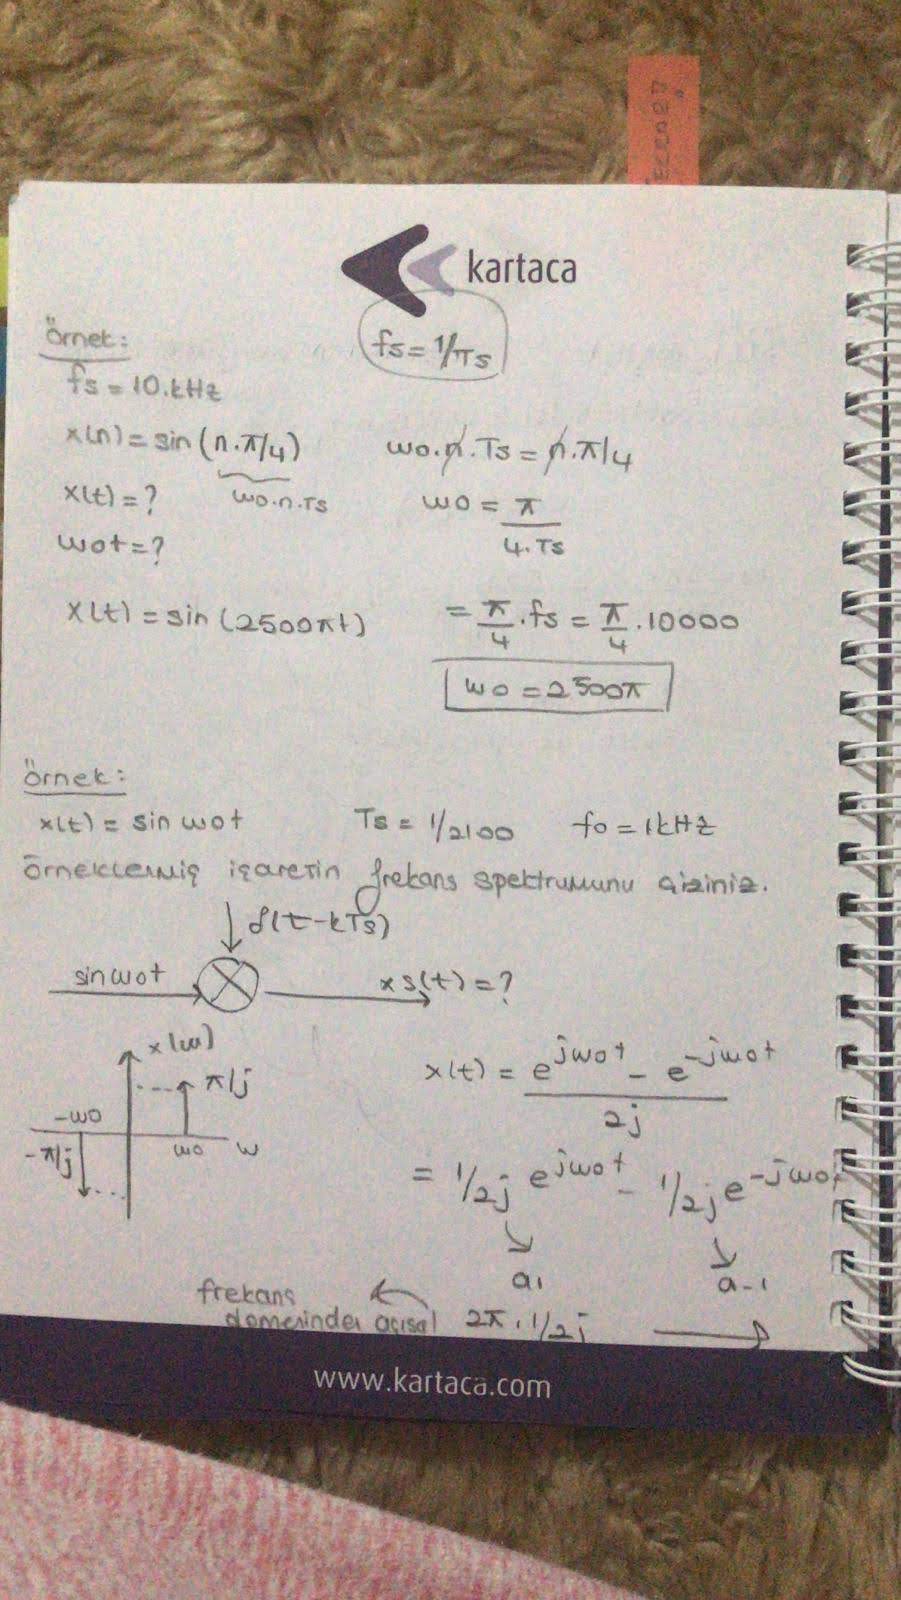 kartaca
fs = 1/Ts
örnek:
fs = 10.kHz
x(n) = sin(n.π/4)
w0.n.Ts
w0.n.Ts = n.π/4
x(t) = ?
w0 = π
4.Ts
w0t = ?
x(t) = sin(2500πt)
= π/4 . fs = π/4 . 10000
w0 = 2500π
örnek:
x(t) = sin w0t Ts = 1/2100 f0 = 1kHz
örneklemiş işaretin frekans spektrumunu çiziniz.
δ(t-kTs)
sinw0t xs(t) = ?
x(w)
π/j
-w0
w0 w
-π/j
x(t) = e^jw0t - e^-jw0t
2j
= 1/2j e^jw0t - 1/2j e^-jw0t
a1 a-1
frekans
domeninde açısal 2π.1/2j
www.kartaca.com